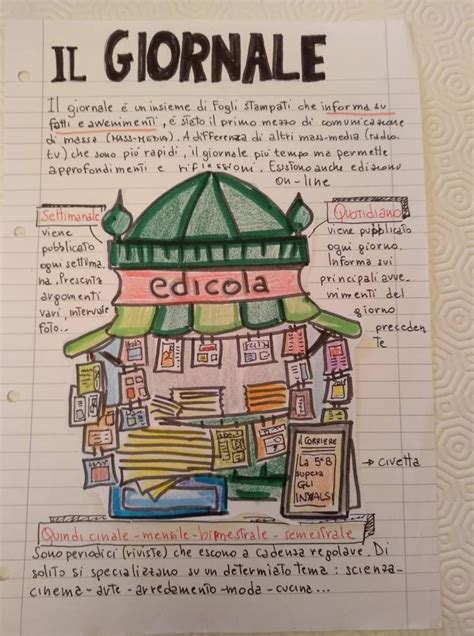 IL GIORNALE
Il giornale é un insieme di fogli stampati che informa su
fatti e avvenimenti, é stato il primo mezzo di comunicazione
di massa (MASS-MEDIA). A differenza di altri mass-media (radio
tv) che sono piú rapidi, il giornale piú tempo ma permette
approfondimenti e riflessioni. Esistono anche edizioni
on-line
Settimanale
viene
pubblicato
ogni settima
na. Presenta
argomenti
vari, interviste
foto...
Quotidiano
viene pubblicato
ogni giorno.
Informa sui
principali avve-
nimenti del
giorno
preceden
te
edicola
il CORRIERE
La 5ªB
supera
GLI
INVALSI
→ civetta
Quindicinale - mensile - bimestrale - semestrale
Sono periodici (riviste) che escono a cadenza regolare. Di
solito si specializzano su un determiato tema: scienza-
cinema - arte - arredamento - moda - cucina...